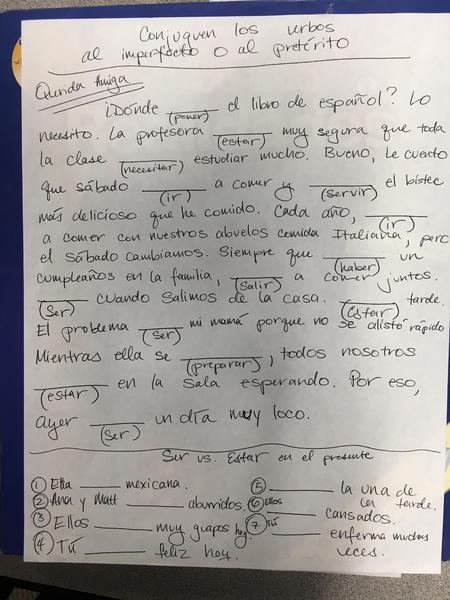 Conjuguen los verbos
al imperfecto o al pretérito
Querida Amiga
¿Dónde ______ el libro de español? Lo
(poner)
necesito. La profesora ______ muy segura que toda
(estar)
la clase ______ estudiar mucho. Bueno, le cuento
(necesitar)
que sábado ______ a comer y ______ el bistec
(ir) (servir)
más delicioso que he comido. Cada año, ______
(ir)
a comer con nuestros abuelos comida Italiana, pero
el sábado cambiamos. Siempre que ______ un
(haber)
cumpleaños en la familia, ______ a comer juntos.
(salir)
______ cuando salimos de la casa. ______ tarde.
(ser) (Estar)
El problema ______ mi mamá porque no se alistó rápido
(ser)
Mientras ella se ______, todos nosotros
(preparar)
______ en la sala esperando. Por eso,
(estar)
ayer ______ un día muy loco.
(ser)
Ser vs. Estar en el presente
① Ella ______ mexicana.
② Ana y Matt ______ aburridos.
③ Ellos ______ muy guapos hoy
④ Tú ______ feliz hoy.
⑤ ______ la una de
la tarde.
⑥ Ellos ______ cansados.
⑦ Tú ______ enferma muchas
veces.